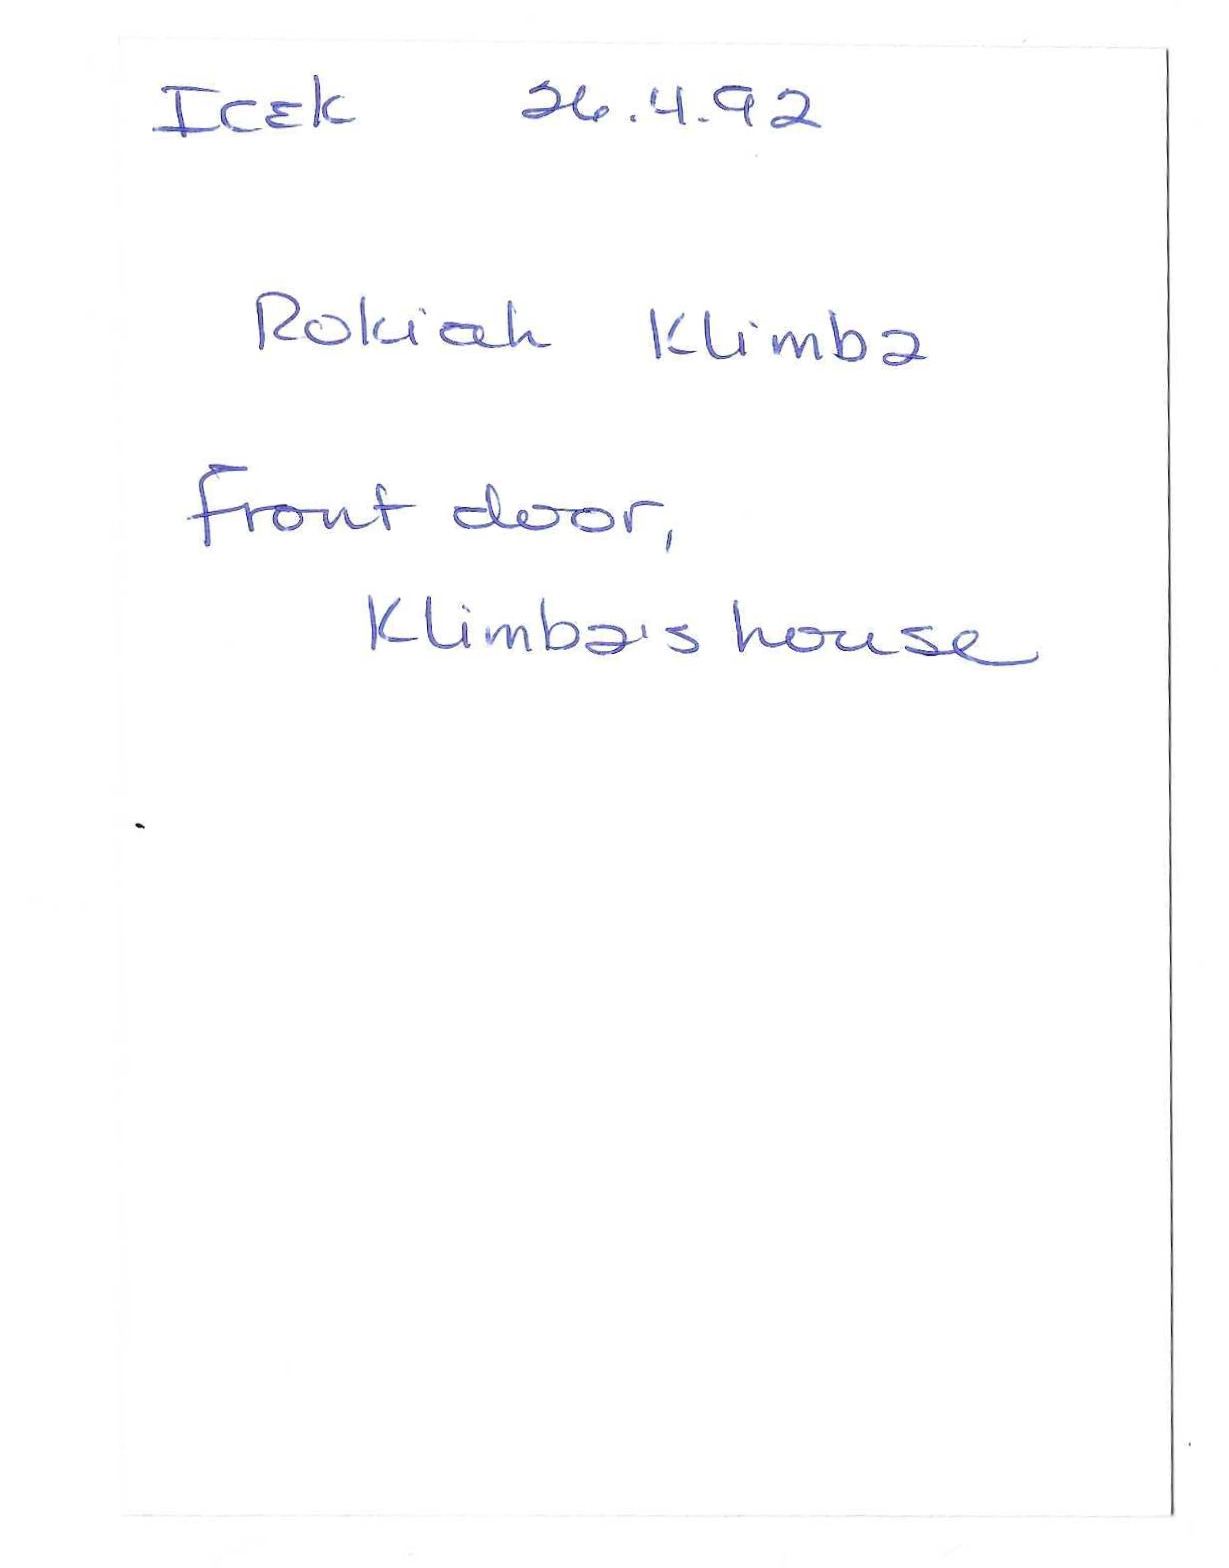 Icek 26.4.92
Rokiah Klimba
Front door,
Klimba's house